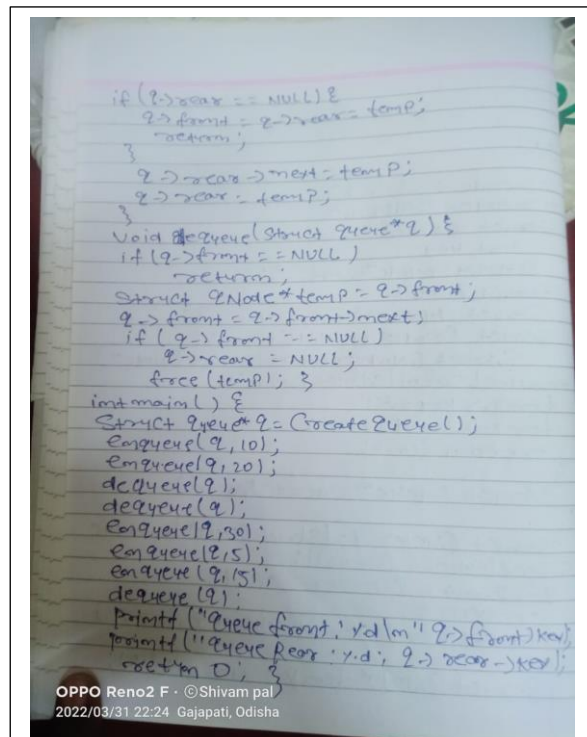 if (q->rear == NULL) {
q->front = q->rear = temp;
return;
}
q->rear->next = temp;
q->rear = temp;
}
void dequeue(struct queue*q) {
if(q->front == NULL)
return;
struct qNode*temp = q->front;
q->front = q->front->next;
if (q->front == NULL)
q->rear = NULL;
free(temp); }
int main() {
struct queue*q = Createqueue();
enqueue(q, 10);
enqueue(q, 20);
dequeue(q);
dequeue(q);
enqueue(q, 30);
enqueue(q, 5);
enqueue(q, 15);
dequeue(q);
printf("queue front: %d\n" q->front->key);
printf("queue Rear: %d; q->rear->key);
return 0; }
OPPO Reno2 F · ©Shivam pal
2022/03/31 22:24 Gajapati, Odisha